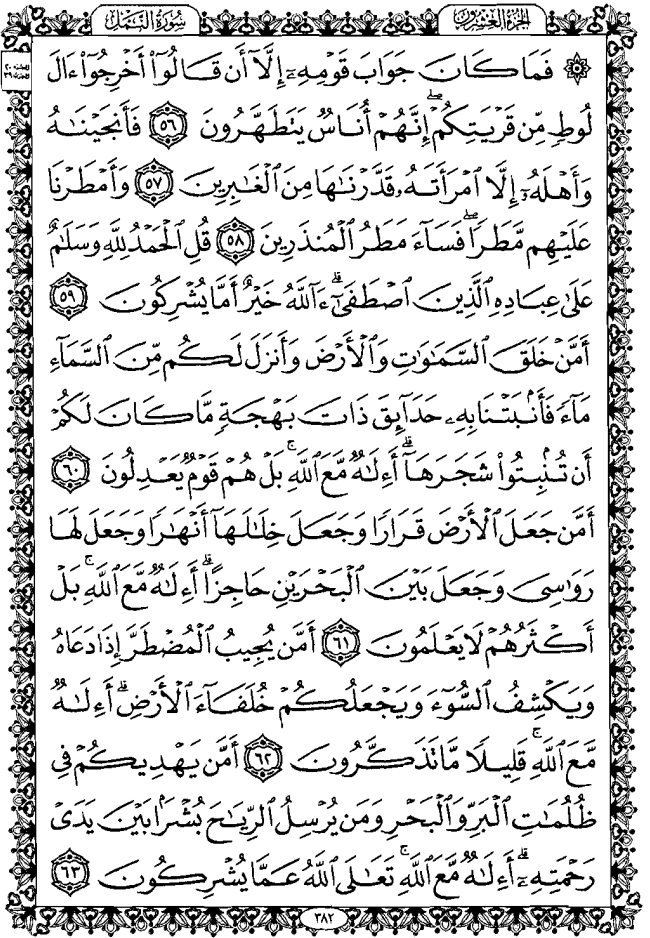 الجزء العشرون
سورة النمل
۞ فَمَا كَانَ جَوَابَ قَوْمِهِۦٓ إِلَّآ أَن قَالُوٓا۟ أَخْرِجُوٓا۟ ءَالَ
لُوطٍ مِّن قَرْيَتِكُمْ ۖ إِنَّهُمْ أُنَاسٌ يَتَطَهَّرُونَ ٥٦ فَأَنجَيْنَـٰهُ
وَأَهْلَهُۥٓ إِلَّا ٱمْرَأَتَهُۥ قَدَّرْنَـٰهَا مِنَ ٱلْغَـٰبِرِينَ ٥٧ وَأَمْطَرْنَا
عَلَيْهِم مَّطَرًا ۖ فَسَآءَ مَطَرُ ٱلْمُنذَرِينَ ٥٨ قُلِ ٱلْحَمْدُ لِلَّهِ وَسَلَـٰمٌ
عَلَىٰ عِبَادِهِ ٱلَّذِينَ ٱصْطَفَىٰٓ ۗ ءَآللَّهُ خَيْرٌ أَمَّا يُشْرِكُونَ ٥٩
أَمَّنْ خَلَقَ ٱلسَّمَـٰوَٰتِ وَٱلْأَرْضَ وَأَنزَلَ لَكُم مِّنَ ٱلسَّمَآءِ
مَآءً فَأَنۢبَتْنَا بِهِۦ حَدَآئِقَ ذَاتَ بَهْجَةٍ مَّا كَانَ لَكُمْ
أَن تُنۢبِتُوا۟ شَجَرَهَآ ۗ أَءِلَـٰهٌ مَّعَ ٱللَّهِ ۚ بَلْ هُمْ قَوْمٌ يَعْدِلُونَ ٦٠
أَمَّن جَعَلَ ٱلْأَرْضَ قَرَارًا وَجَعَلَ خِلَـٰلَهَآ أَنْهَـٰرًا وَجَعَلَ لَهَا
رَوَٰسِىَ وَجَعَلَ بَيْنَ ٱلْبَحْرَيْنِ حَاجِزًا ۗ أَءِلَـٰهٌ مَّعَ ٱللَّهِ ۚ بَلْ
أَكْثَرُهُمْ لَا يَعْلَمُونَ ٦١ أَمَّن يُجِيبُ ٱلْمُضْطَرَّ إِذَا دَعَاهُ
وَيَكْشِفُ ٱلسُّوٓءَ وَيَجْعَلُكُمْ خُلَفَآءَ ٱلْأَرْضِ ۗ أَءِلَـٰهٌ
مَّعَ ٱللَّهِ ۚ قَلِيلًا مَّا تَذَكَّرُونَ ٦٢ أَمَّن يَهْدِيكُمْ فِى
ظُلُمَـٰتِ ٱلْبَرِّ وَٱلْبَحْرِ وَمَن يُرْسِلُ ٱلرِّيَـٰحَ بُشْرًۢا بَيْنَ يَدَىْ
رَحْمَتِهِۦٓ ۗ أَءِلَـٰهٌ مَّعَ ٱللَّهِ ۚ تَعَـٰلَى ٱللَّهُ عَمَّا يُشْرِكُونَ ٦٣
٣٨٢